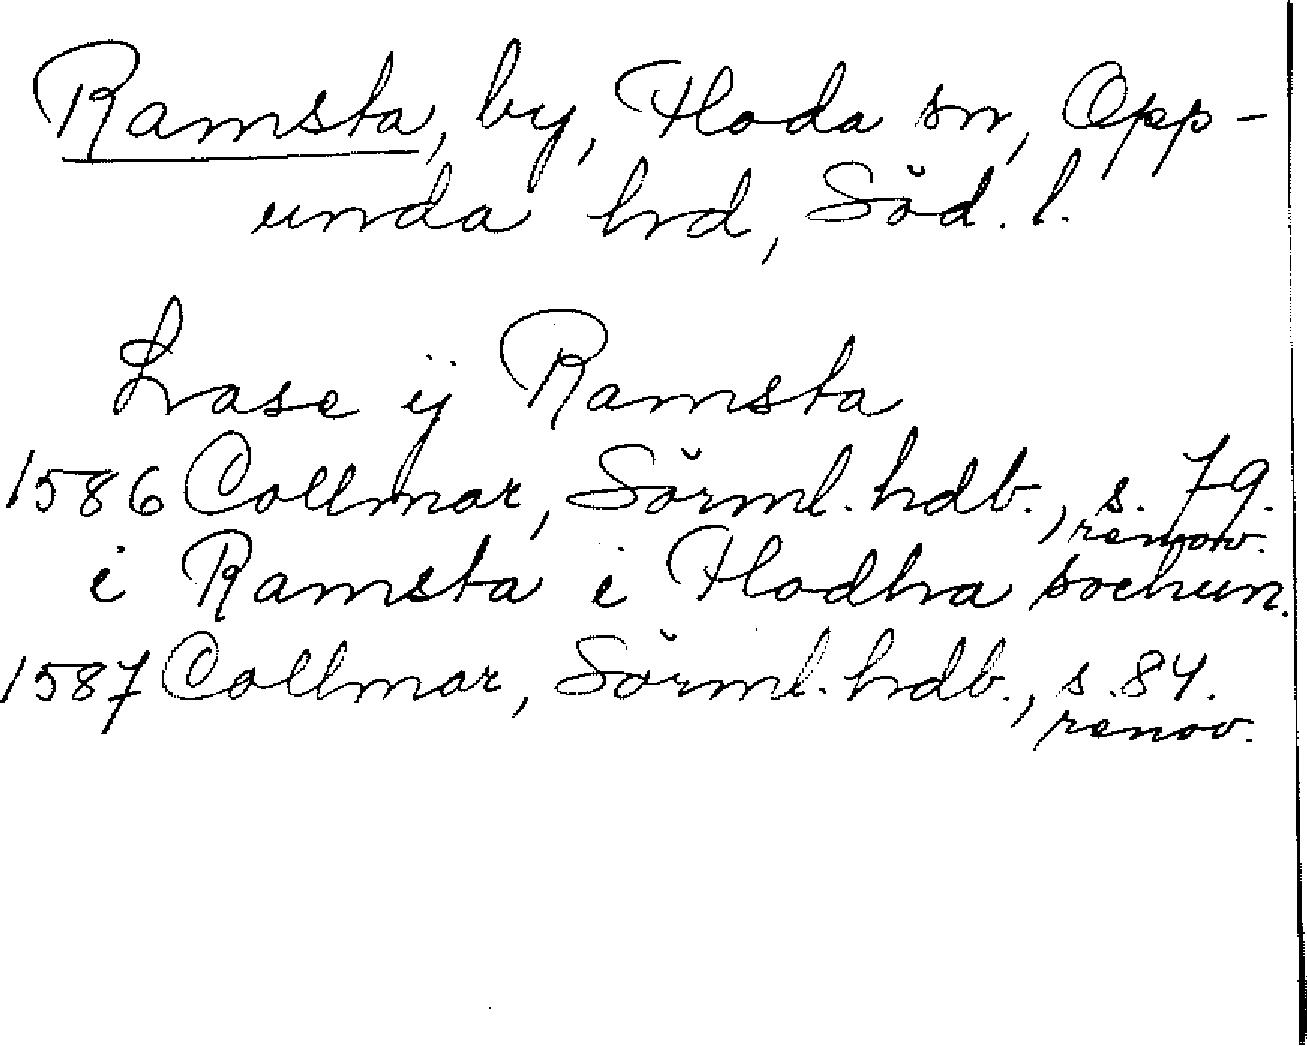 Ramsta, by, Floda sn, Opp-
unda hrd, Söd. l.
Lasse ij Ramsta
1586 Collmar, Sörml. hdb., s. 79.
renov.
i Ramsta i Flodha sochun.
1587 Collmar, Sörml. hdb., s. 84.
renov.